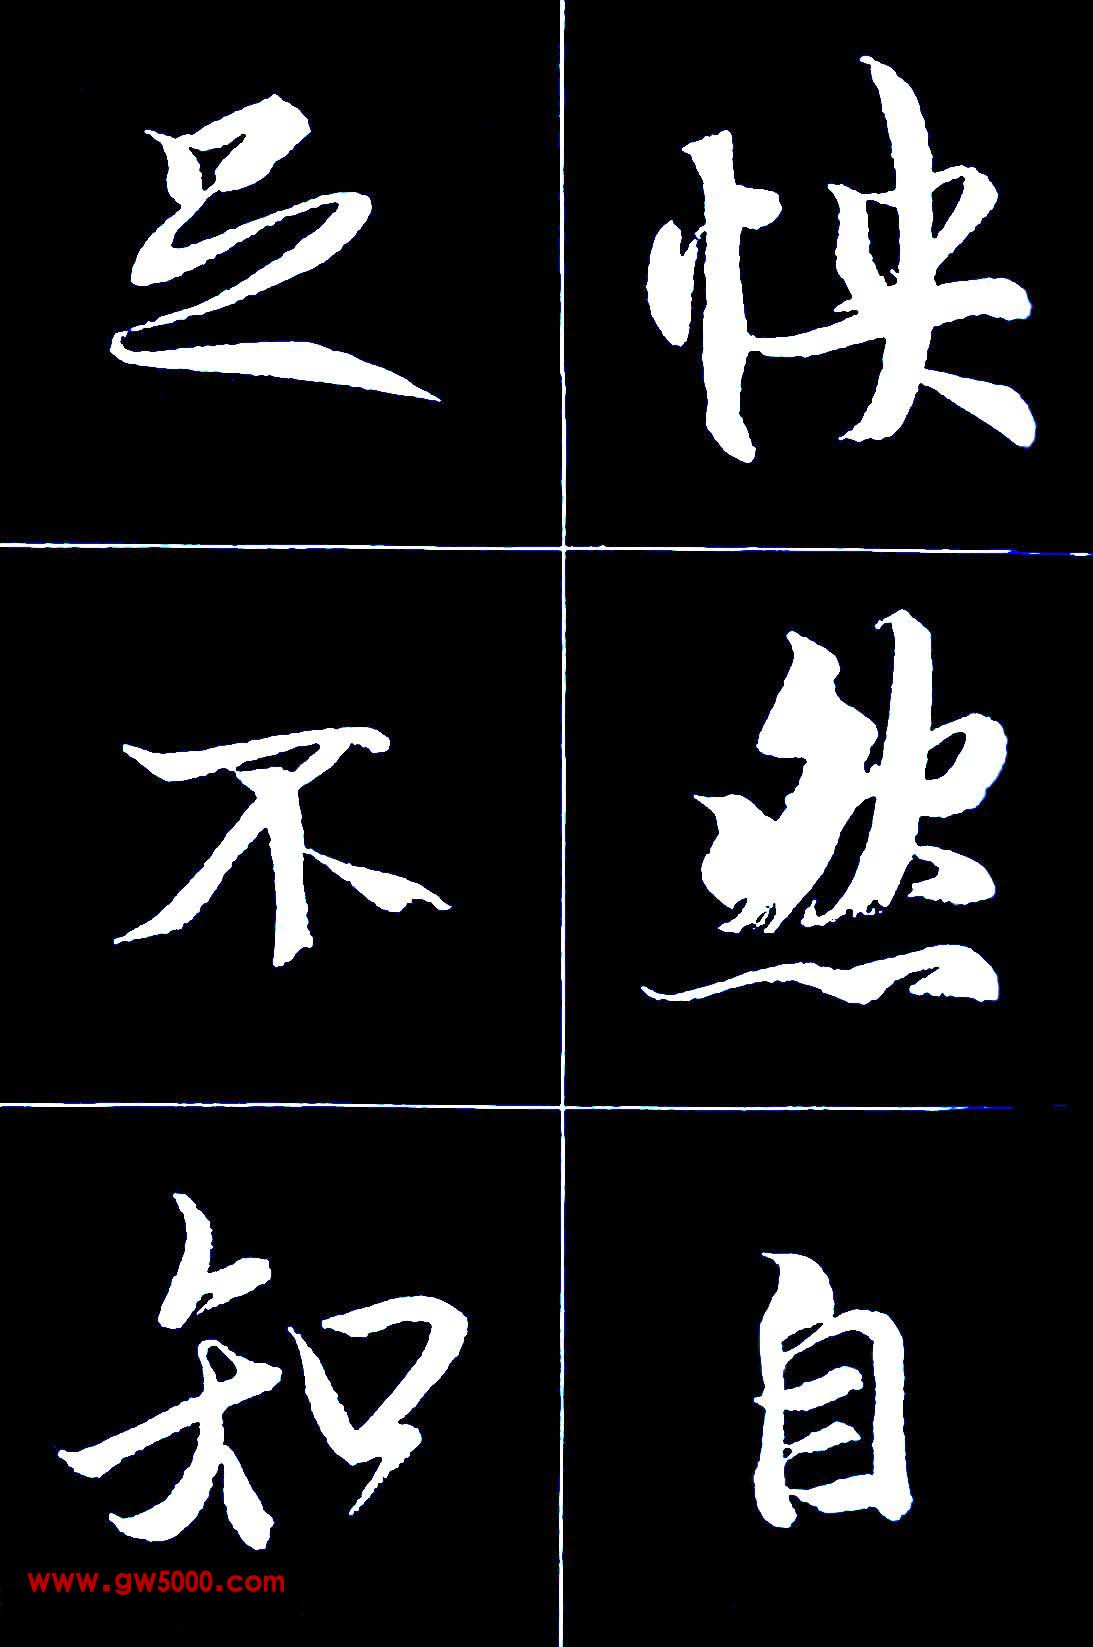 怏然自
足不知
www.gw5000.com